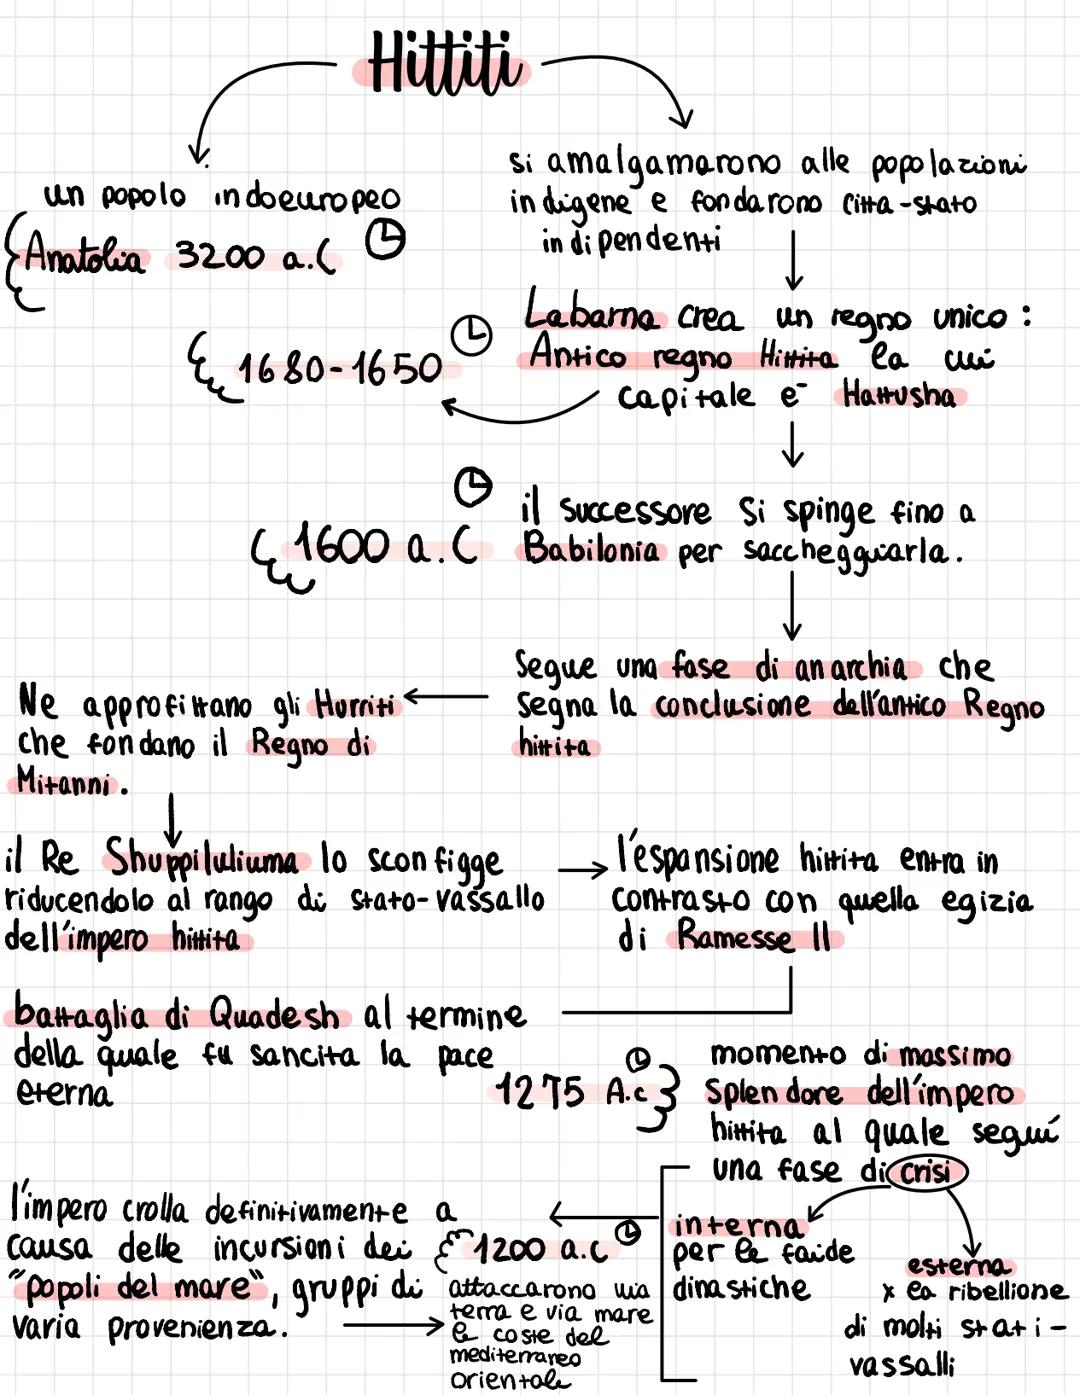 Hittiti
un popolo indoeuropeo
Anatolia 3200 a.C
si amalgamarono alle popolazioni
indigene e fondarono citta-stato
indipendenti
Labarna crea un regno unico:
Antico regno Hittita la cui
capitale e Hattusha
1680-1650
il successore si spinge fino a
Babilonia per saccheggiarla.
1600 a.C
Segue una fase di anarchia che
segna la conclusione dell'antico Regno
hittita
Ne approfittano gli Hurriti
che fondano il Regno di
Mitanni.
il Re Shuppiluliuma lo sconfigge
riducendolo al rango di stato-vassallo
dell'impero hittita
l'espansione hittita entra in
contrasto con quella egizia
di Ramesse II
battaglia di Quadesh al termine
della quale fu sancita la pace
eterna
1275 A.c
momento di massimo
splendore dell'impero
hittita al quale seguì
una fase di crisi
interna
per le faide
dinastiche
esterna
x la ribellione
di molti stati-
vassalli
l'impero crolla definitivamente a
causa delle incursioni dei
"popoli del mare", gruppi di
varia provenienza.
1200 a.c
attaccarono via
terra e via mare
le coste del
mediterraneo
orientale